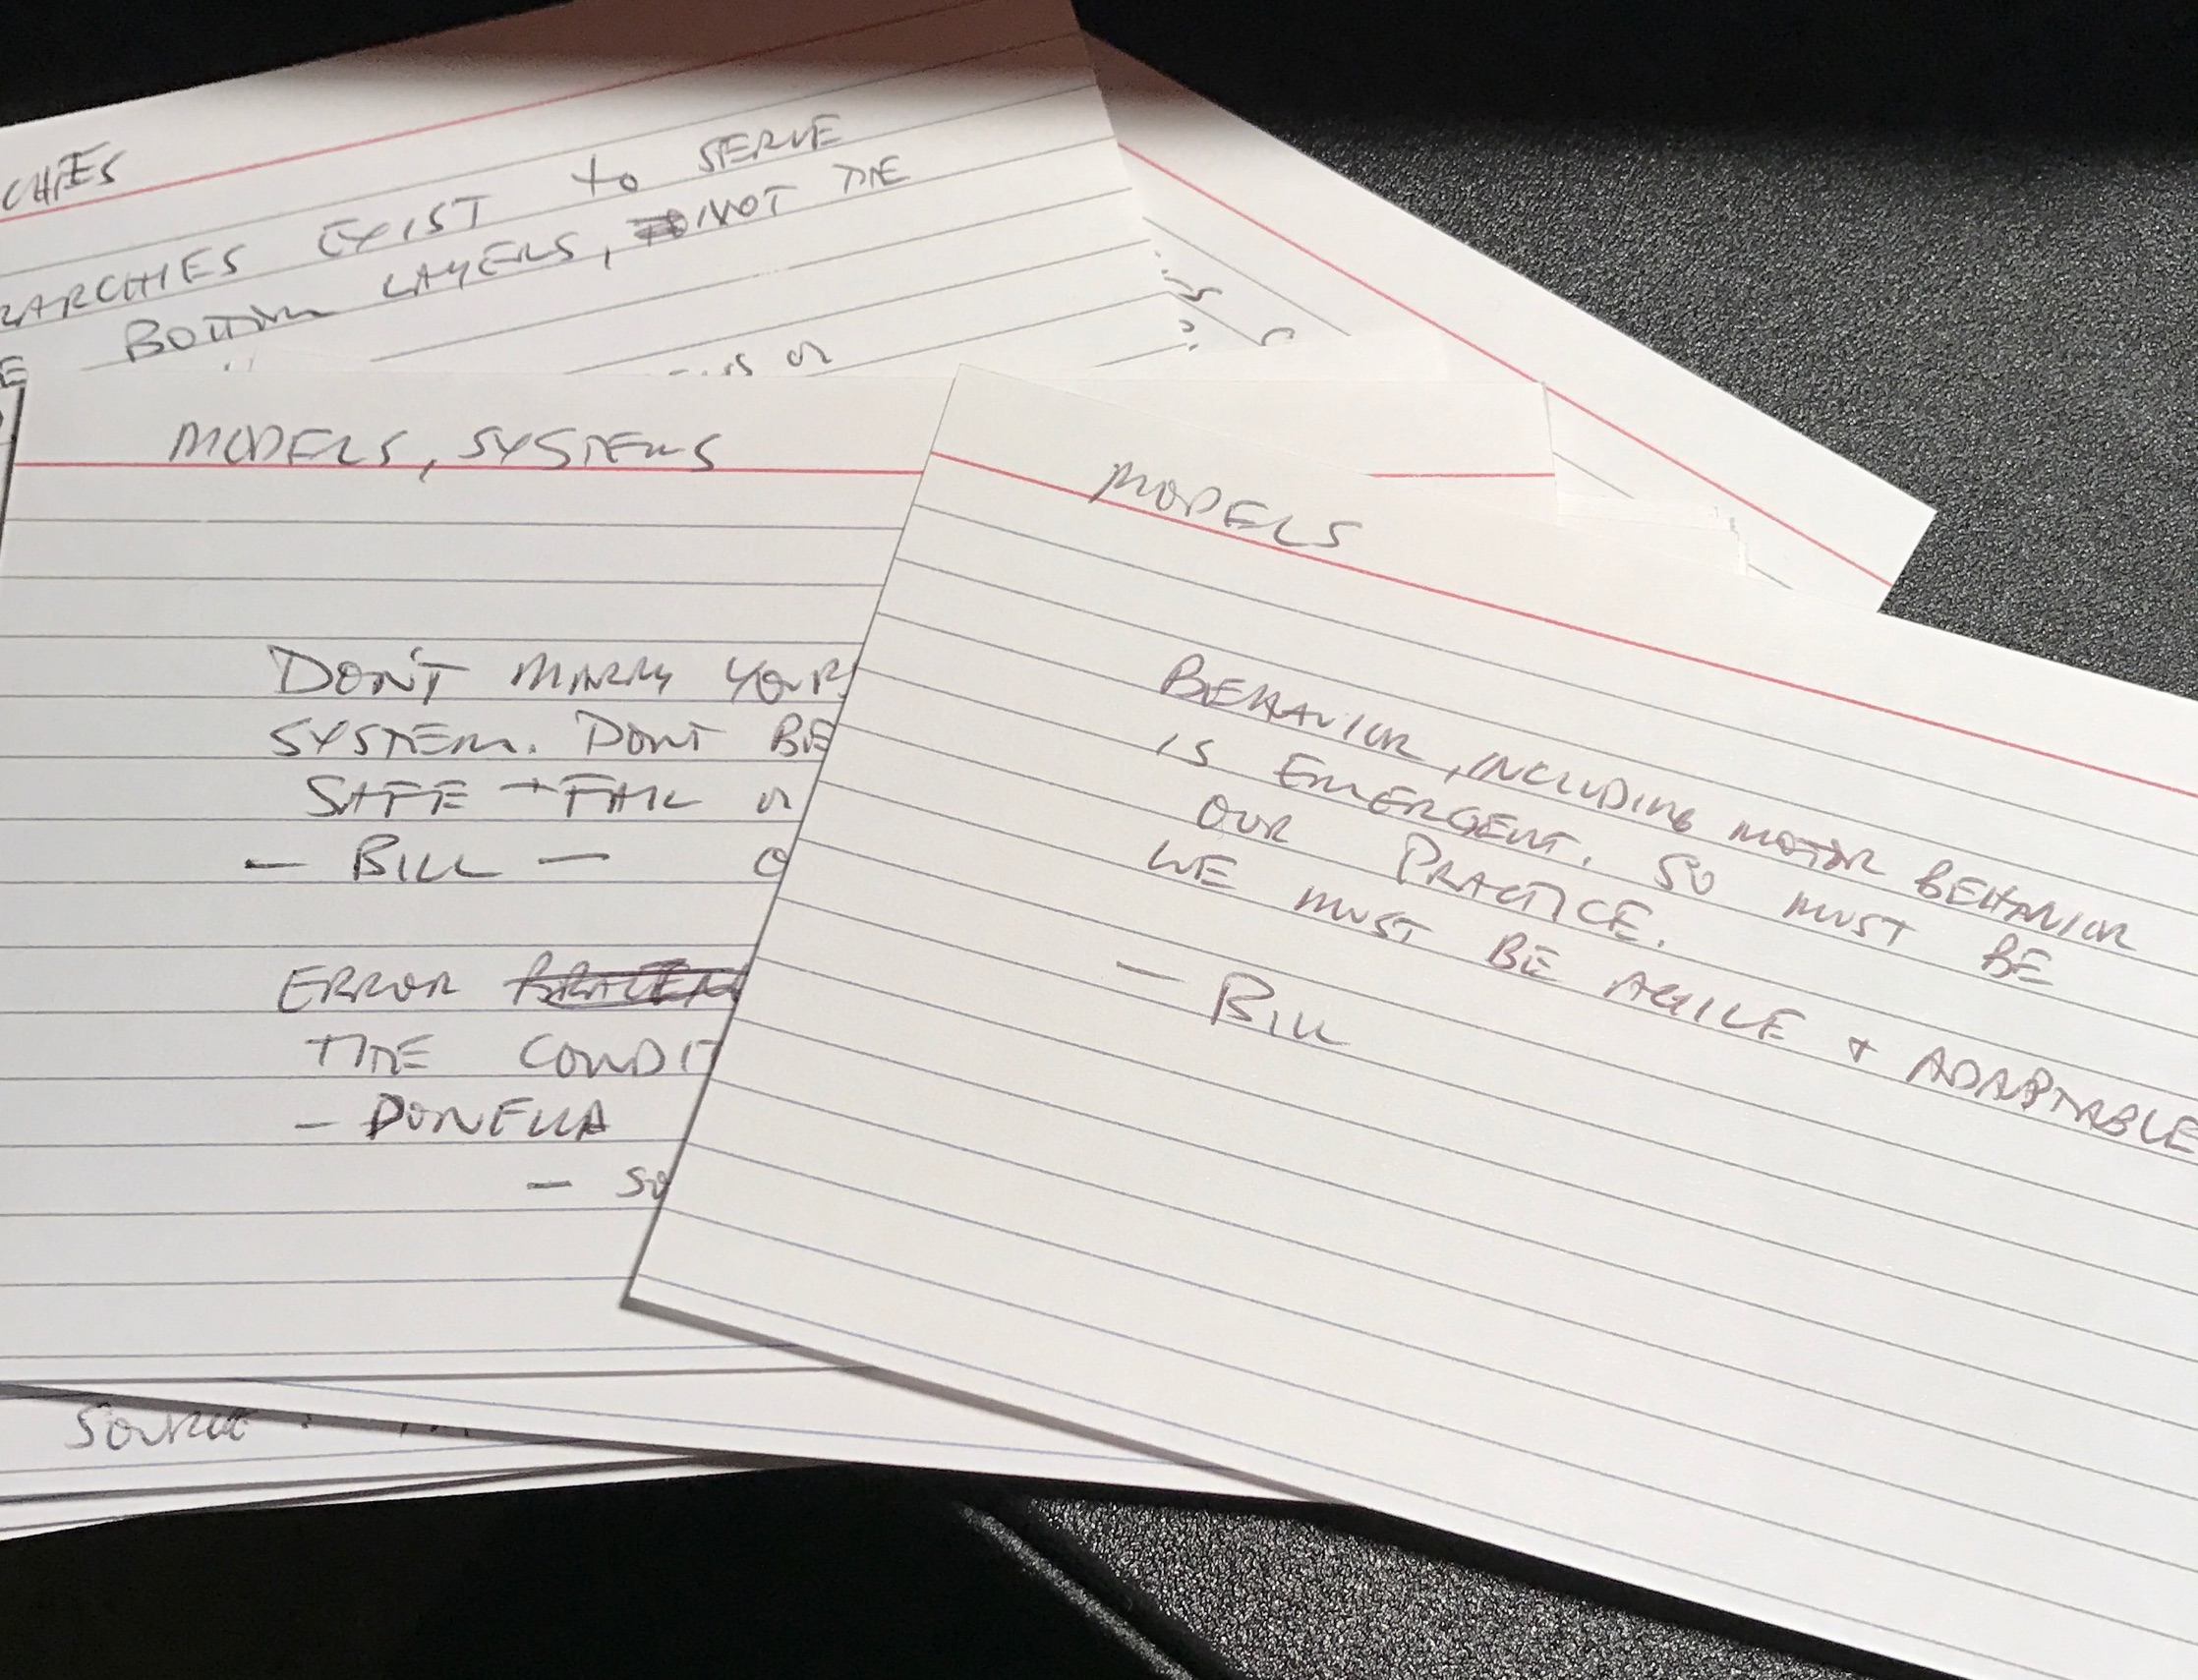 CHIES
RARCHIES EXIST to SERVE
BOTTOM LAYERS, NOT THE
MODELS, SYSTEMS
DON'T MARRY YOUR
SYSTEM. DONT BE
SAFE → FAIL
— BILL —
ERROR
THE CONDIT
— DONELLA
— SO
SOURCE:
MODELS
BEHAVIOR, INCLUDING MOTOR BEHAVIOR
IS EMERGENT. SO MUST BE
OUR PRACTICE.
WE MUST BE AGILE + ADAPTABLE
— BILL